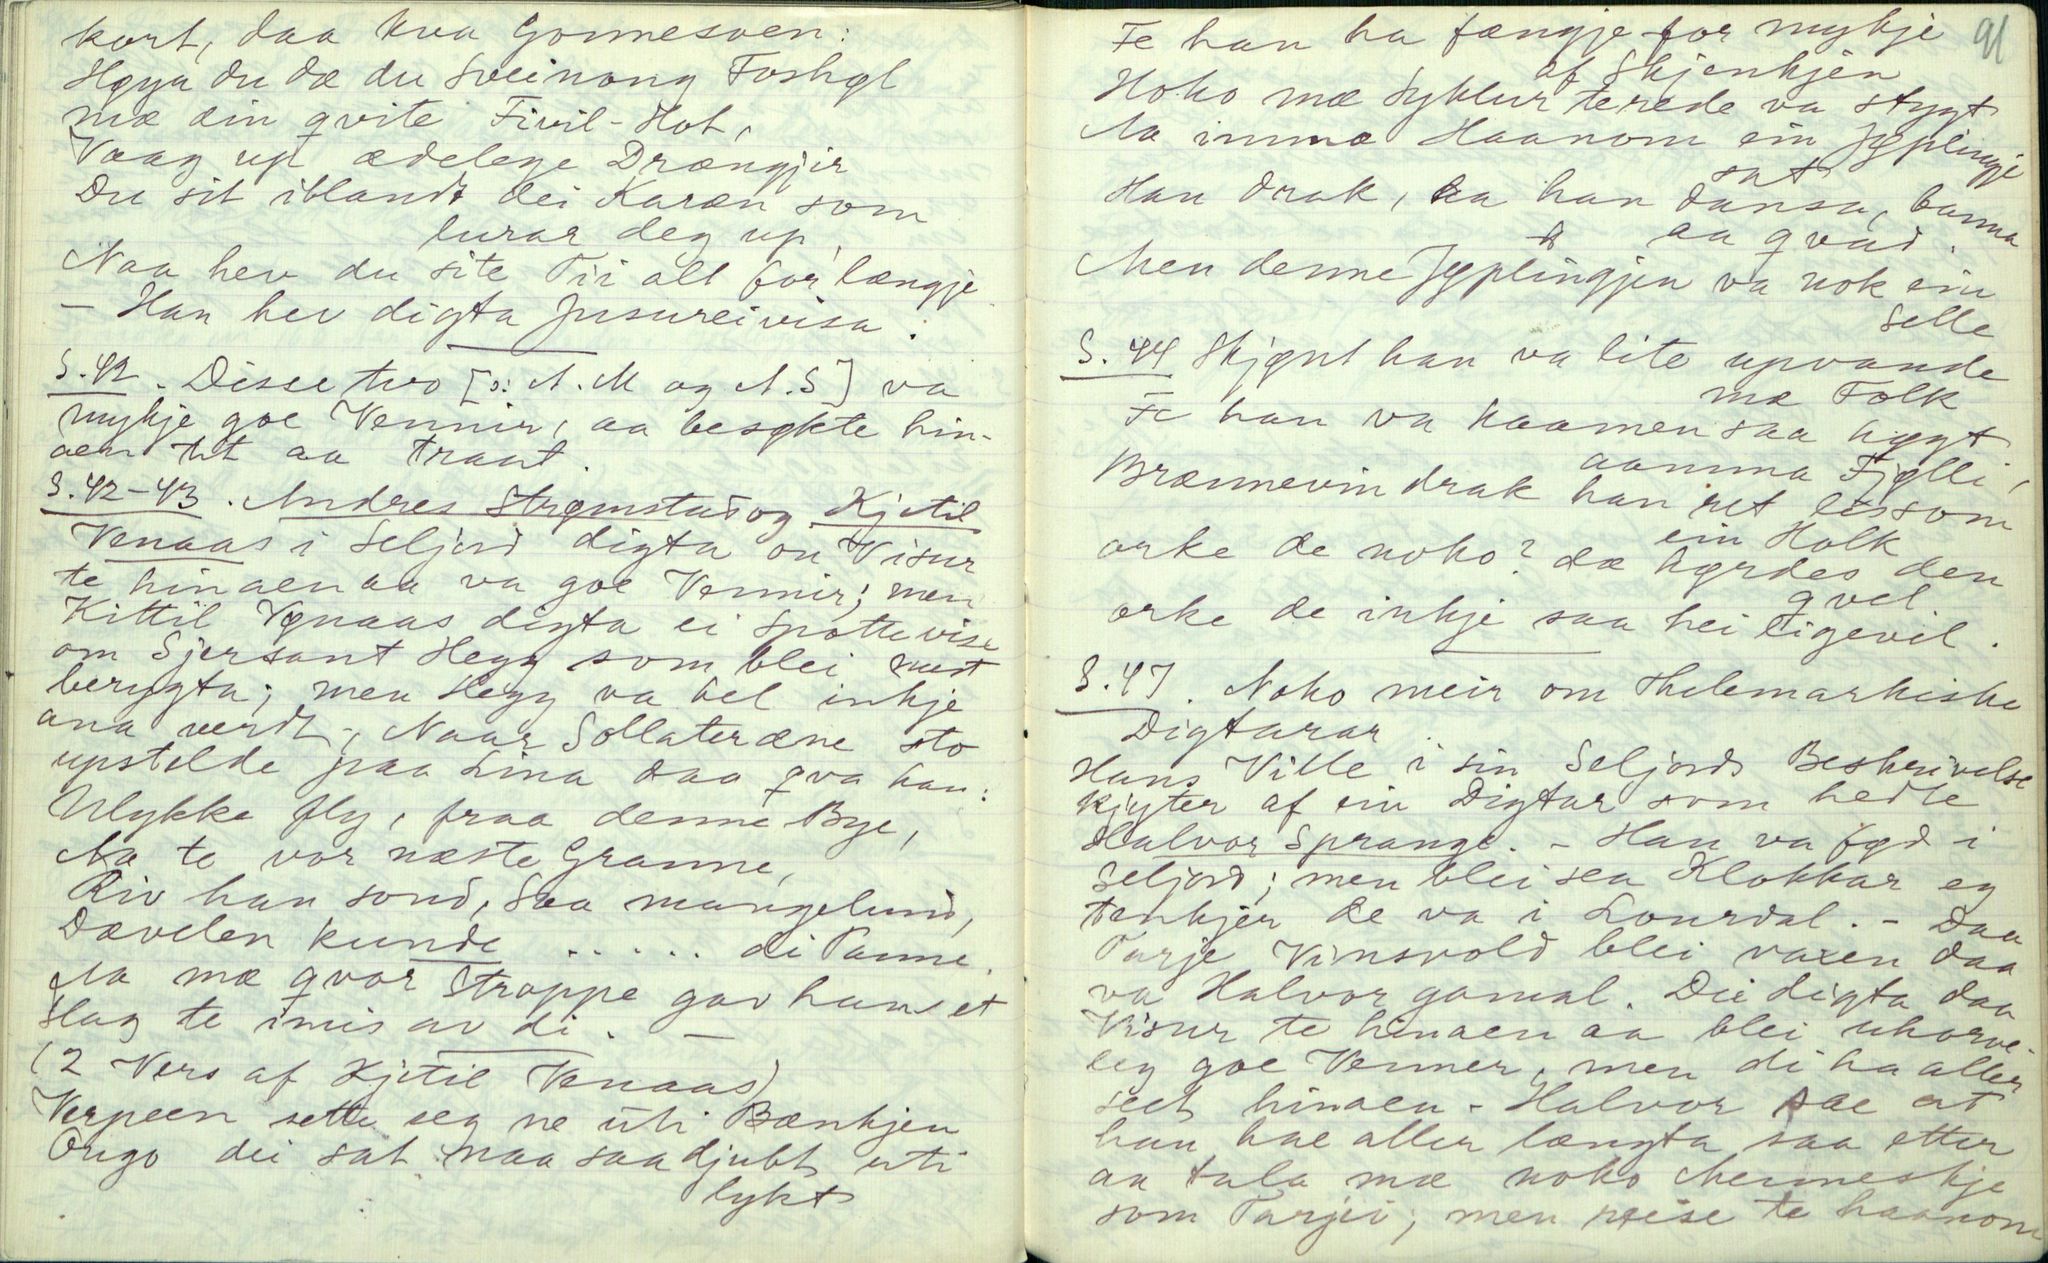 kort, daa kva Gonnesven:
Høyr du dæ du Sveinong Foshøl
mæ din qvite Fivil-Hat,
Vaag up ædelege Drængjir
Du sit iblandt dei Karæn som
lurar deg up,
Naa hev du site Tii alt for længje
- Han hev digta Jusureivisa.
S.42. Disse two [ɔ: A.M og A.S] va
mykje goe Vennir, aa besøkte hin-
aen tit aa traat.
S.42-43. Andres Strømstad og Kjetil
Venaas i Seljord digta on Visur
te hinaen aa va goe Vennir; men
Kittil Vønaas digta ei Spottevise
om Sjersant Hegg som blei mest
berygta; men Hegg va vel inkje
ana verdt; Naar Sollateræne sto
upstelde paa Lina daa qva han:
Ulykke fly, fraa denne Bye,
Aa te vor næste Granne,
Riv han sond, saa mangelund,
Dævelen kunde ..... di Panne.
Aa mæ qvor Stroppe gav han et
Slag te imis av di. —
(2 Vers af Kjetil Venaas)
Verpeen sette seg ne uti Bænkjen
Ougo dei sat naa saa djubt uti
lykt
91
Fe han ha fængje for mykje
af Skjenkjen
Hoko mæ Syklur terede va stygt
Aa imma Haanom ein Jyplingje
sat
Han drak, aa han dansa, banna
aa qvad.
Men denne Jyplingjen va nok ein
Selle
S.44 Skjønt han va lite upvande
mæ Folk
Fe han va kaamen saa høgt
aamma Fjølli,
Brænnevin drak han ret les som
ein Holk
orke de noko? dæ hørdes den
qvel.
orke de inkje saa hei ligevil.
S.47. Noko meir om Thelemarkiske
Digtarar
Hans Ville i sin Seljords Beskrivelse
kjyter af ein Digtar som hedte
Halvor Sprange. - Han va fød i
Seljord; men blei sea Klokkar eg
tenkjer de va i Lourdal. - Daa
Tarje Vinsvold blei vaxen daa
va Halvor gamal. Dei digta daa
Visur te hinaen aa blei uhorve-
leg goe Venner, men di ha aller
seet hinaen - Halvor sae at
han hae aller længta saa etter
aa tala mæ noko Menneskje
som Tarjei; men reise te haanom